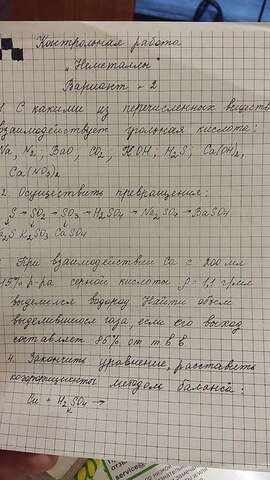 Контрольная работа
„Неметаллы"
Вариант - 2
1. С какими из перечисленных веществ
взаимодействует угольная кислота:
Na, N₂, BaO, CO₂, KOH, H₂S, Ca(OH)₂,
Ca(NO₃)₂
2. Осуществить превращения:
S→SO₂→SO₃→H₂SO₄→Na₂SO₄→BaSO₄
K₂SO₃ CaSO₄
При взаимодействии Ca с 200 мл
15% р-ра серной кислоты ρ=1,1 г/мл
выделился водород. Найти объем
выделившегося газа, если его выход
составляет 85% от т в в
4. Закончить уравнение, расставить
коэффициенты методом баланса:
+ H₂SO₄ →